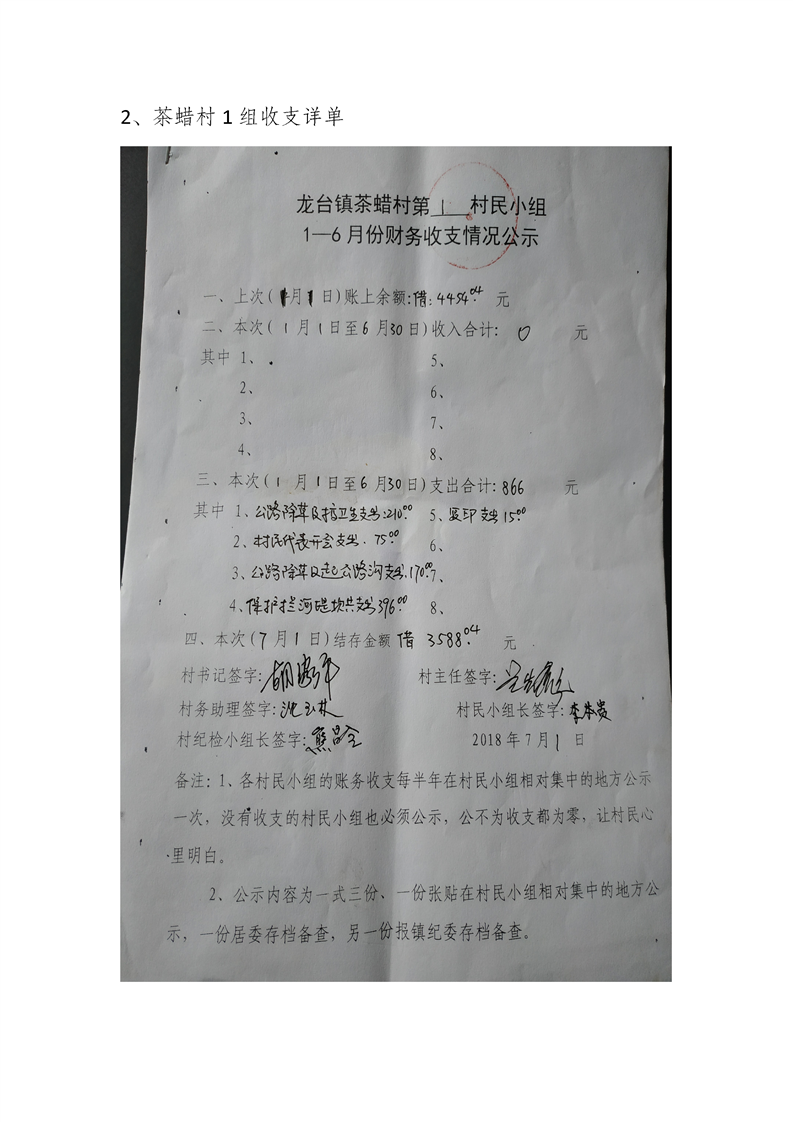 2、茶蜡村1组收支详单
龙台镇茶蜡村第 1 村民小组
1—6月份财务收支情况公示
一、上次(1月1日)账上余额:借:4454.04 元
二、本次(1月1日至6月30日)收入合计: 0 元
其中 1、 5、
2、 6、
3、 7、
4、 8、
三、本次(1月1日至6月30日)支出合计:866 元
其中 1、公路除草及打卫生支出:210.00 5、复印支出15.00
2、村民代表开会支出.75.00 6、
3、公路除草及起公路沟支出.170.00 7、
4、保护拦河堤坝共支出396.00 8、
四、本次(7月1日)结存金额 借 3588.04 元
村书记签字: 村主任签字:
村务助理签字: 村民小组长签字:李本贵
村纪检小组长签字:熊昌全 2018年7月1日
备注:1、各村民小组的账务收支每半年在村民小组相对集中的地方公示
一次，没有收支的村民小组也必须公示，公不为收支都为零，让村民心
里明白。
2、公示内容为一式三份、一份张贴在村民小组相对集中的地方公
示，一份居委存档备查，另一份报镇纪委存档备查。